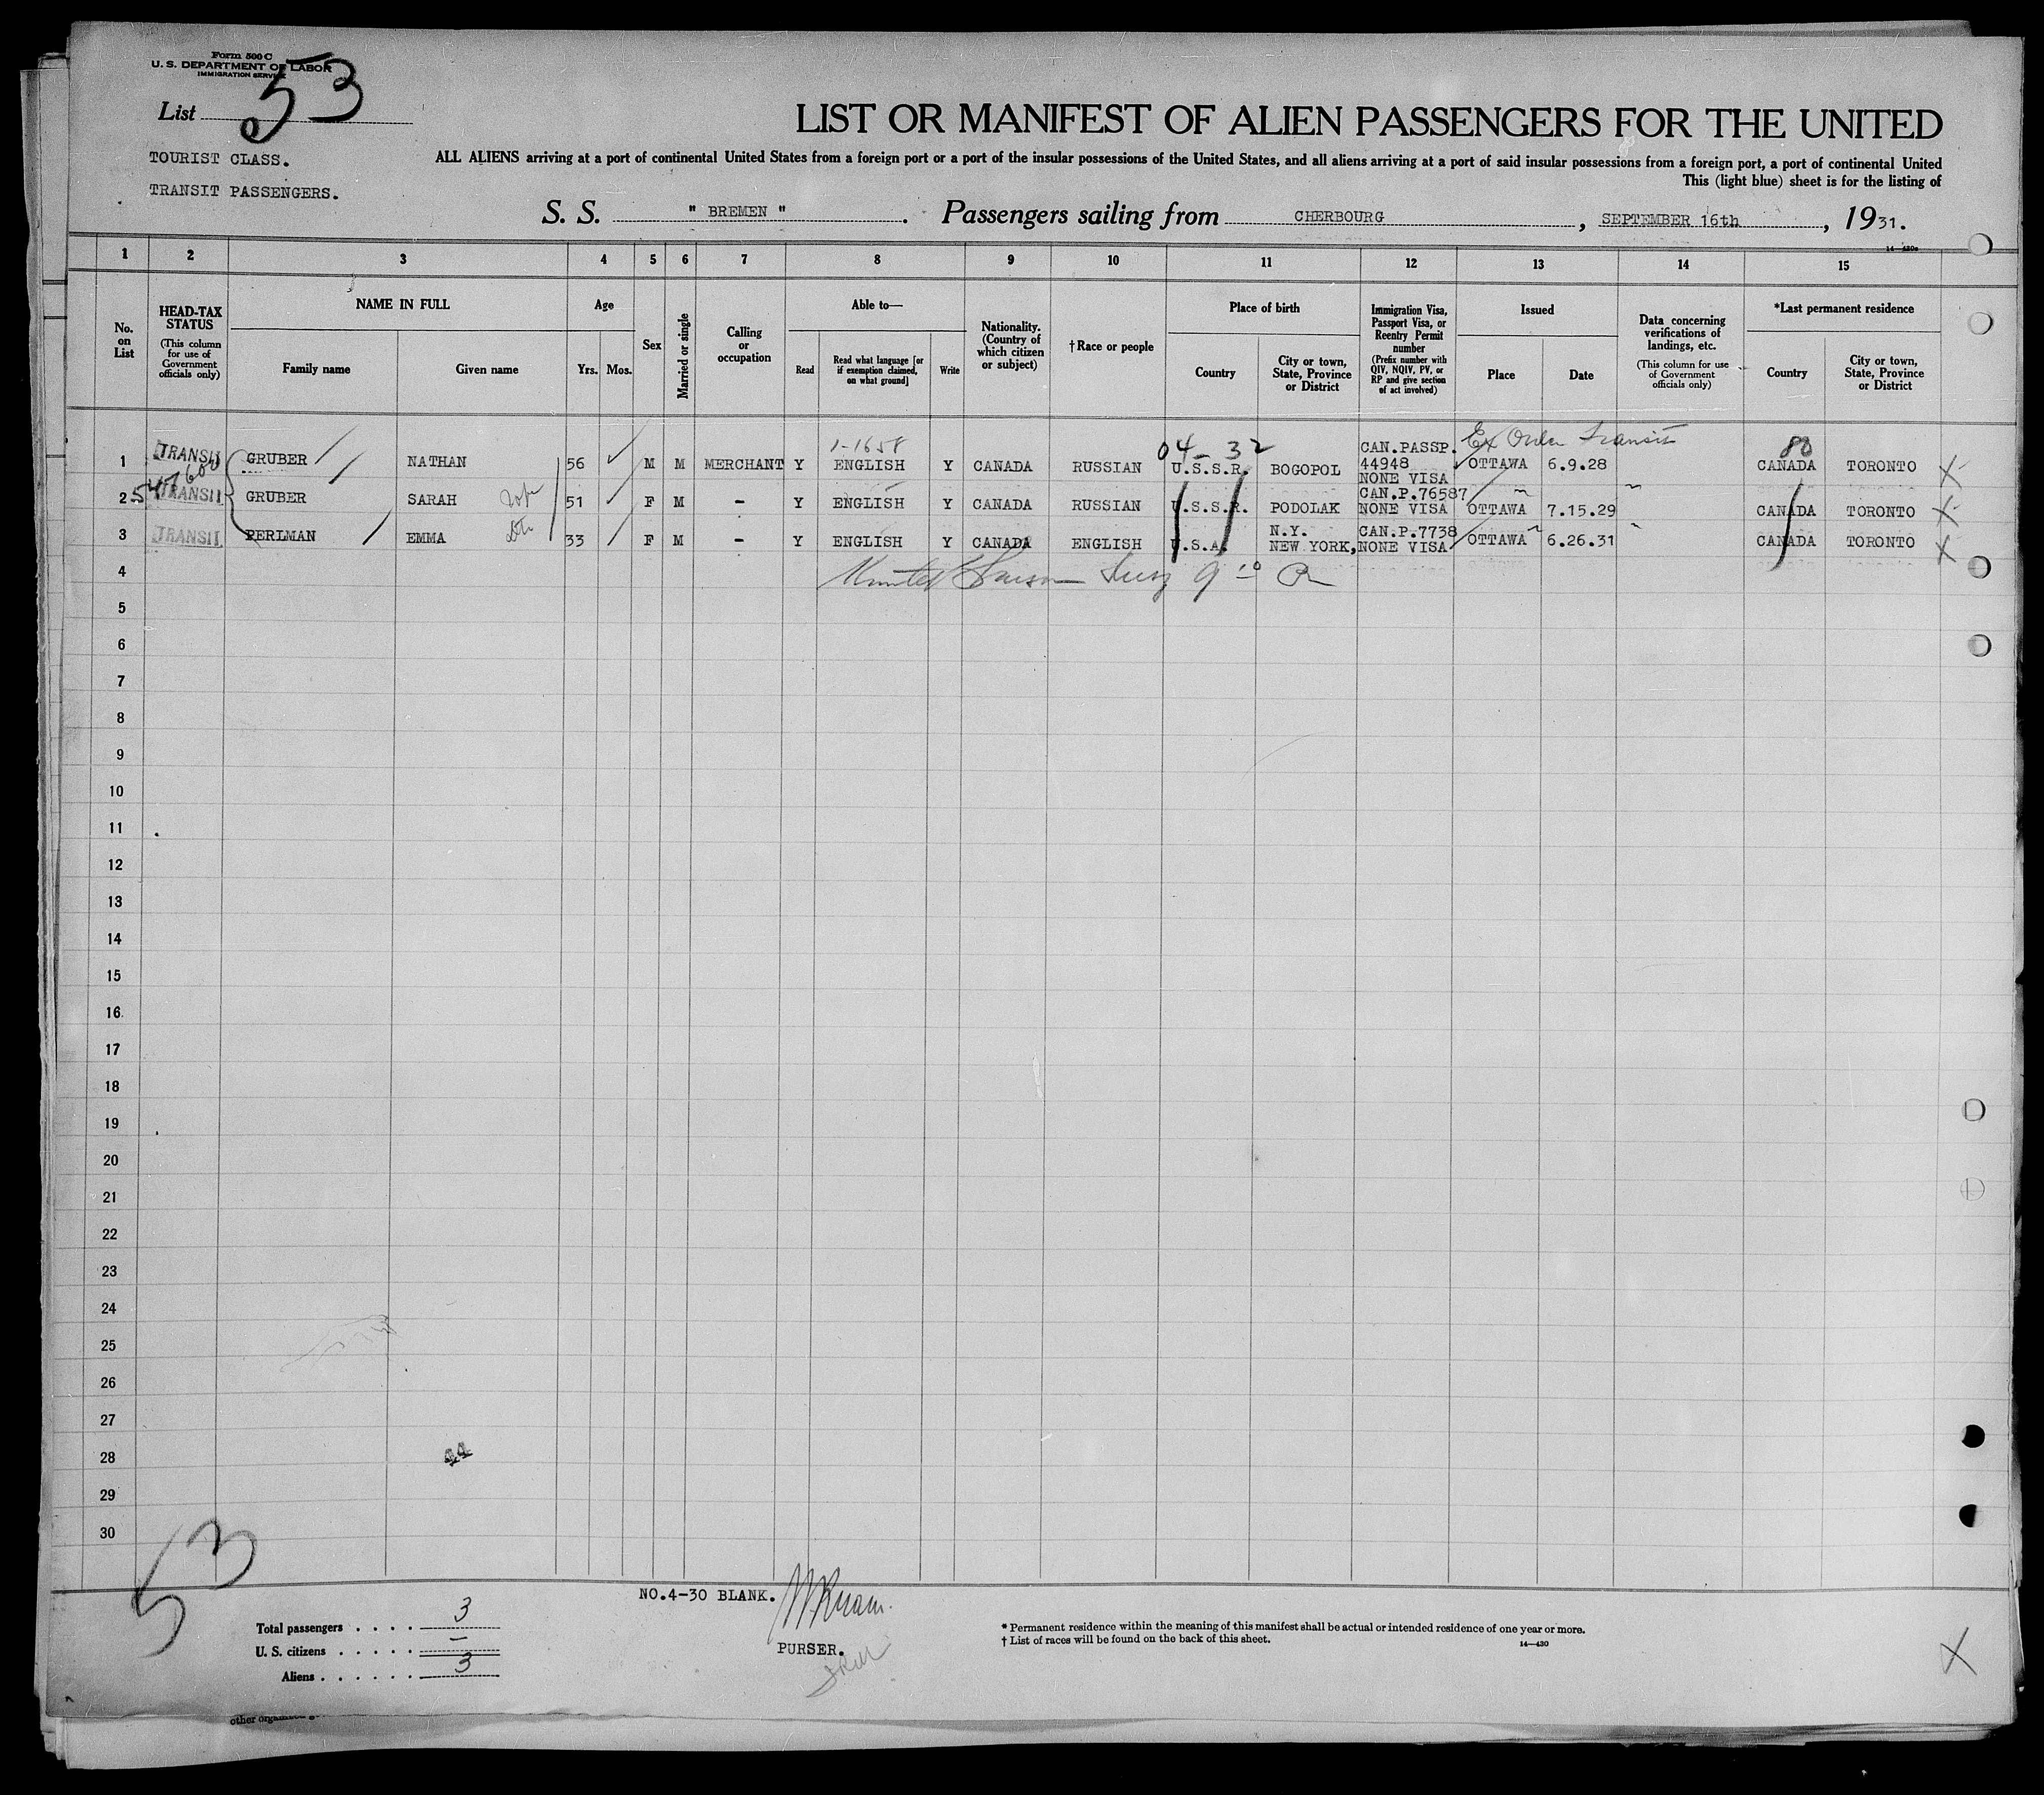 Form 500 C
U. S. DEPARTMENT OF LABOR
IMMIGRATION SERVICE
List 53
TOURIST CLASS.
TRANSIT PASSENGERS.
LIST OR MANIFEST OF ALIEN PASSENGERS FOR THE UNITED
ALL ALIENS arriving at a port of continental United States from a foreign port or a port of the insular possessions of the United States, and all aliens arriving at a port of said insular possessions from a foreign port, a port of continental United
This (light blue) sheet is for the listing of
S. S. " BREMEN ". Passengers sailing from CHERBOURG, SEPTEMBER 16th, 1931.
1 2 3 4 5 6 7 8 9 10 11 12 13 14 15
No. on List
HEAD-TAX STATUS (This column for use of Government officials only)
NAME IN FULL
Family name
Given name
Age
Yrs. Mos.
Sex
Married or single
Calling or occupation
Able to—
Read
Read what language [or if exemption claimed, on what ground]
Write
Nationality. (Country of which citizen or subject)
†Race or people
Place of birth
Country
City or town, State, Province or District
Immigration Visa, Passport Visa, or Reentry Permit number (Prefix number with QIV, NQIV, PV, or RP and give section of act involved)
Issued
Place
Date
Data concerning verifications of landings, etc. (This column for use of Government officials only)
*Last permanent residence
Country
City or town, State, Province or District
1-1658
04-32
Ex Order Transit
80
1 TRANSIT GRUBER NATHAN 56 M M MERCHANT Y ENGLISH Y CANADA RUSSIAN U.S.S.R. BOGOPOL CAN.PASSP. 44948 NONE VISA OTTAWA 6.9.28 CANADA TORONTO X
2 TRANSIT GRUBER SARAH 51 F M - Y ENGLISH Y CANADA RUSSIAN U.S.S.R. PODOLAK CAN.P.76587 NONE VISA OTTAWA 7.15.29 CANADA TORONTO X
3 TRANSIT PERLMAN EMMA 33 F M - Y ENGLISH Y CANADA ENGLISH U.S.A. N.Y. NEW YORK, CAN.P.7738 NONE VISA OTTAWA 6.26.31 CANADA TORONTO X
4
5
6
7
8
9
10
11
12
13
14
15
16
17
18
19
20
21
22
23
24
25
26
27
28 44
29
30
53
NO.4-30 BLANK.
PURSER.
Total passengers . . . . 3
U. S. citizens . . . . . —
Aliens . . . . . . 3
* Permanent residence within the meaning of this manifest shall be actual or intended residence of one year or more.
† List of races will be found on the back of this sheet.
14—430
X